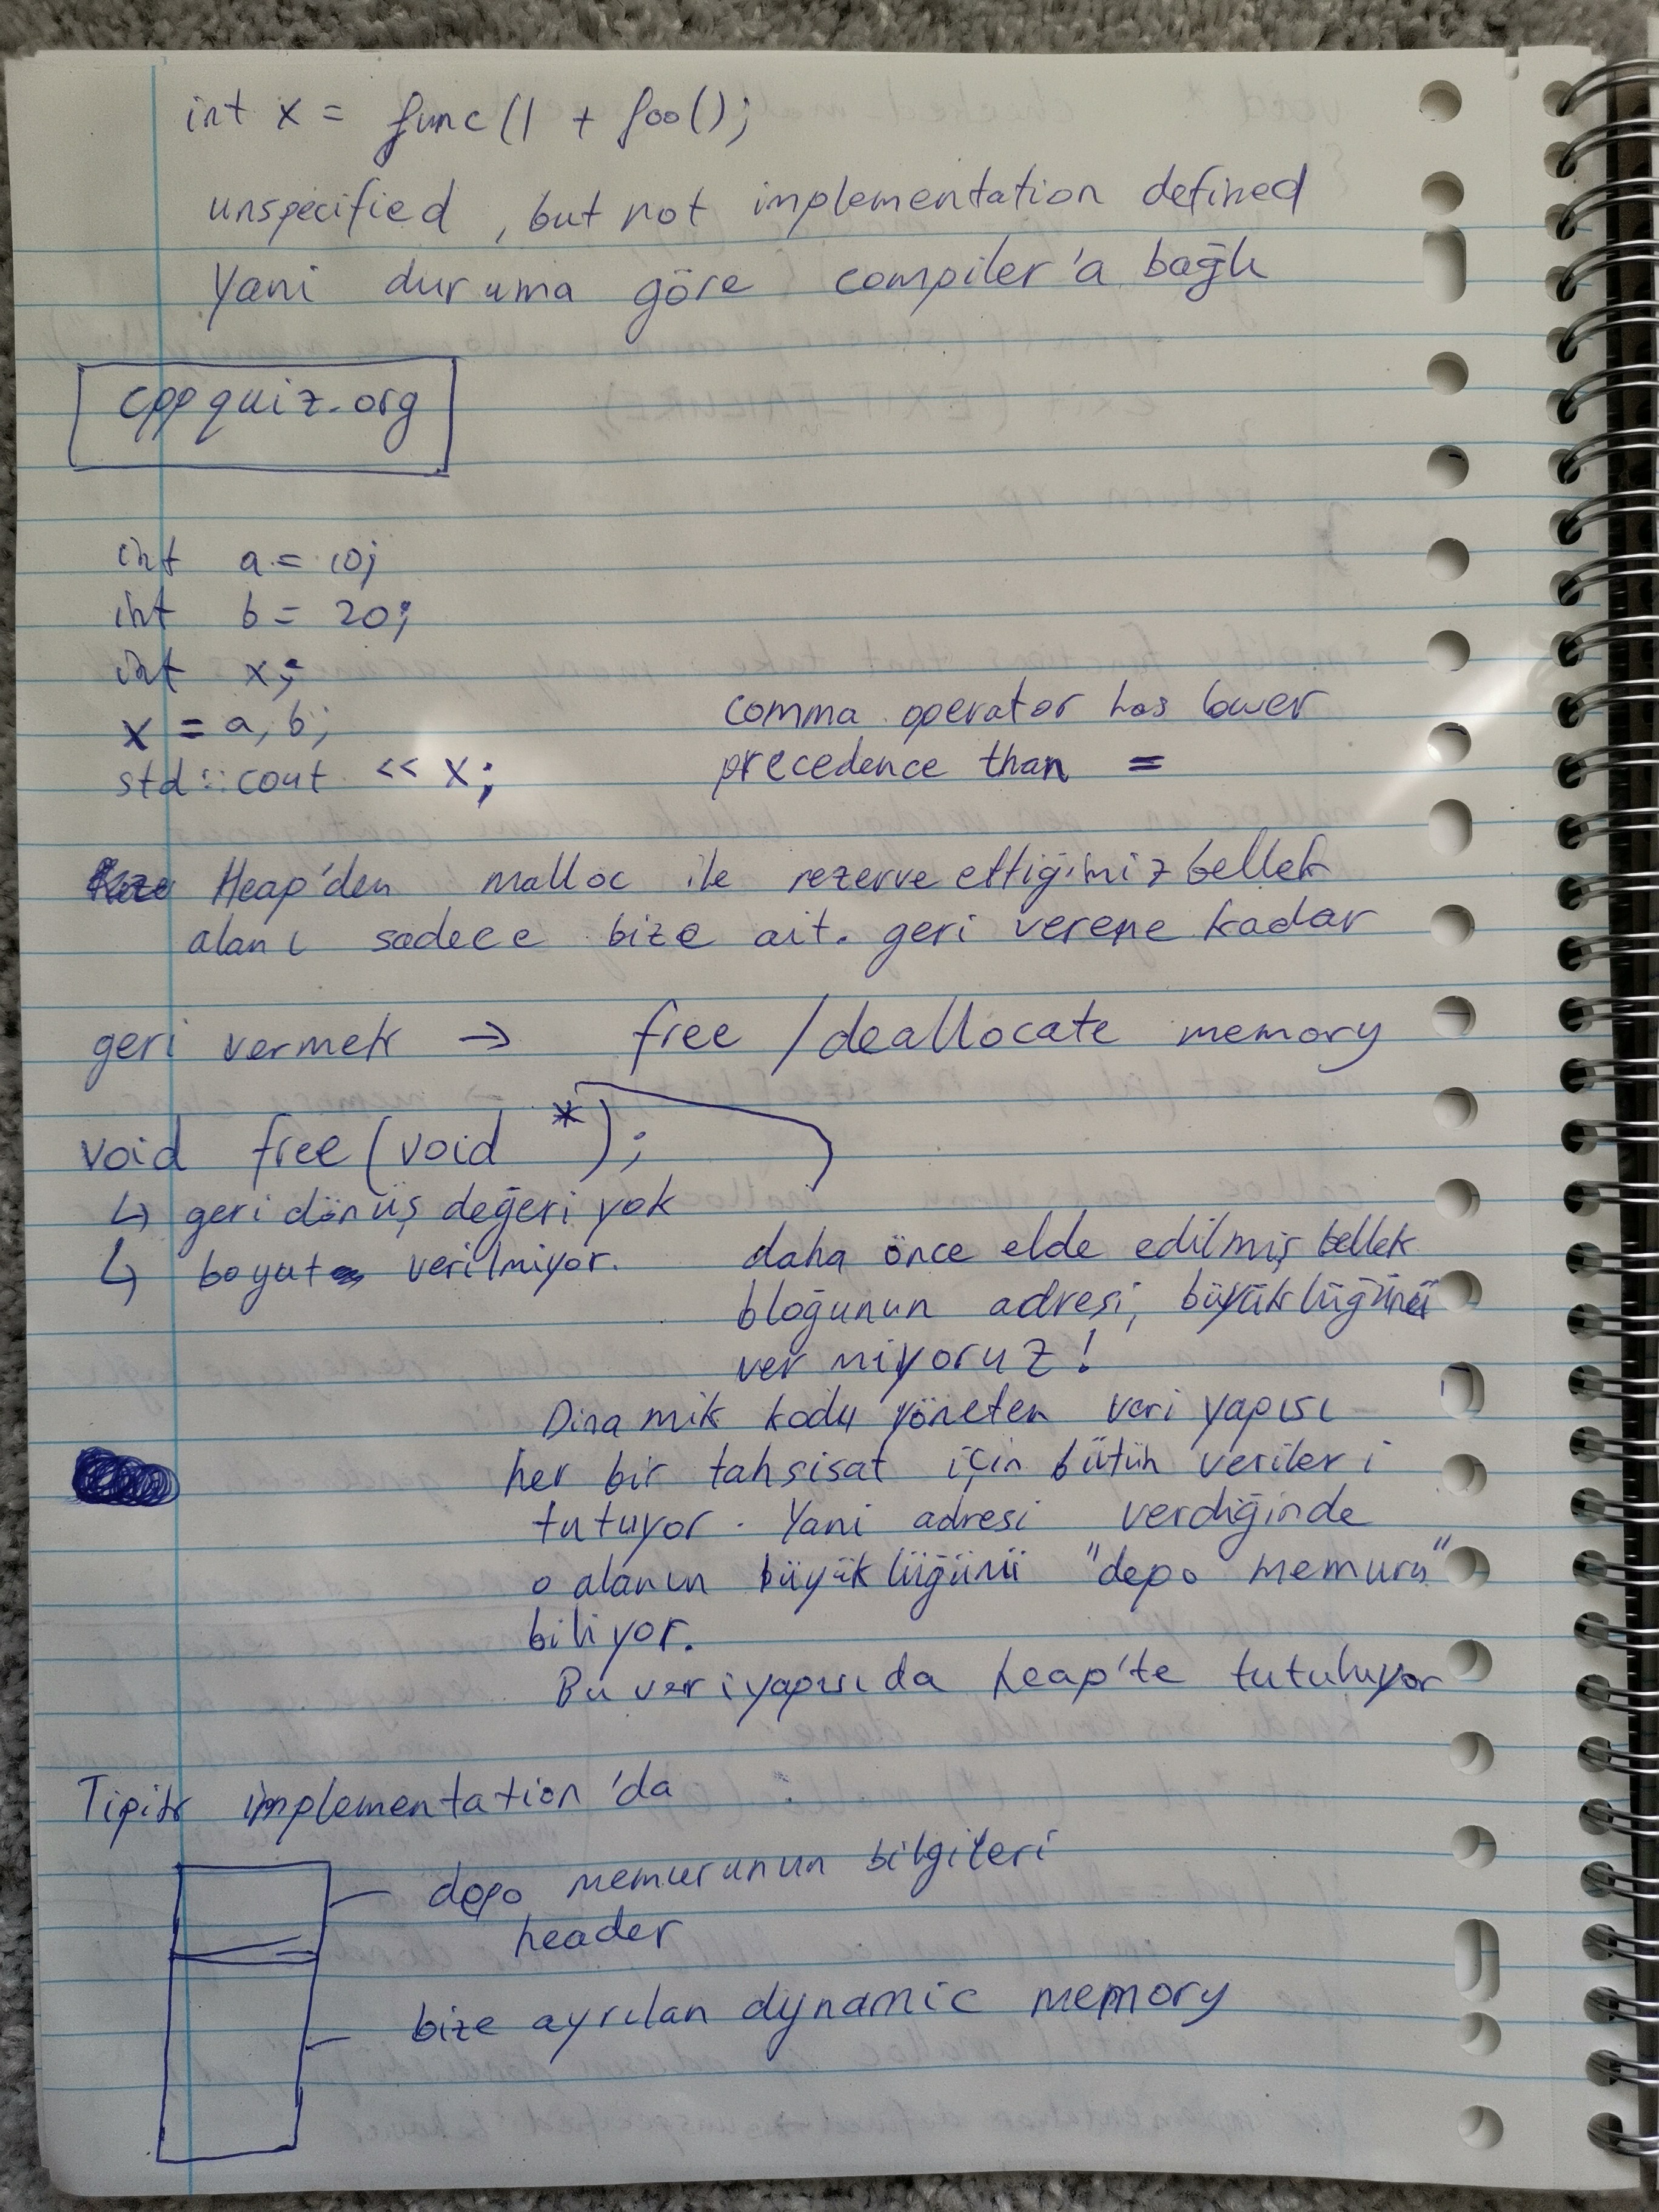 int x = func(1 + foo();
unspecified, but not implementation defined
Yani duruma göre compiler'a bağlı
cppquiz.org
int a = 10;
int b = 20;
int x;
x = a, b;
std::cout << x;
comma operator has lower
precedence than =
Heap'den malloc ile rezerve ettiğimiz bellek
alanı sadece bize ait. geri verene kadar
geri vermek → free / deallocate memory
void free(void *);
↳ geri dönüş değeri yok
↳ boyut verilmiyor.
daha önce elde edilmiş bellek
bloğunun adresi, büyüklüğünü
vermiyoruz!
Dinamik kodu yöneten veri yapısı
her bir tahsisat için bütün verileri
tutuyor. Yani adresi verdiğinde
o alanın büyüklüğünü "depo memuru"
biliyor.
Bu veri yapısı da heap'te tutuluyor
Tipik implementation'da
depo memurunun bilgileri
header
bize ayrılan dynamic memory